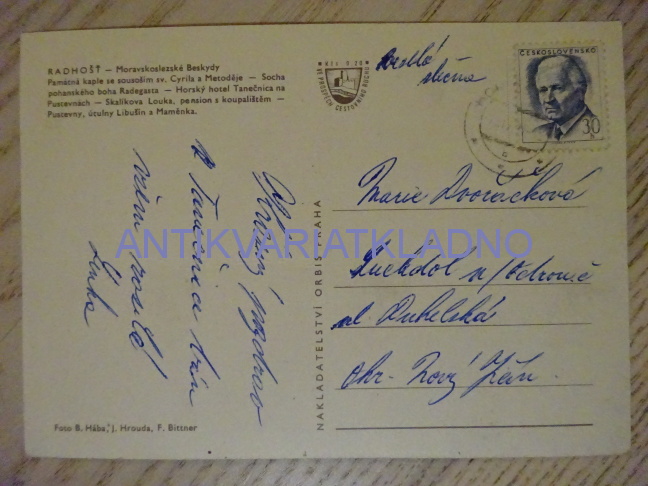 RADHOŠŤ — Moravskoslezské Beskydy
Památná kaple se sousoším sv. Cyrila a Metoděje — Socha
pohanského boha Radegasta — Horský hotel Tanečnica na
Pustevnách — Skalíkova Louka, pension s koupalištěm —
Pustevny, útulny Libušín a Maměnka.
ČESKOSLOVENSKO
30 h
Vážená
slečna
Marie Dvořáčková
Suchdol n/Odrou
okr. Nový Jičín
Srdečný pozdrav
z Tanečnice
všem posílá
Lenka
ANTIKVARIATKLADNO
NAKLADATELSTVÍ ORBIS PRAHA
Foto B. Hába, J. Hrouda, F. Bittner